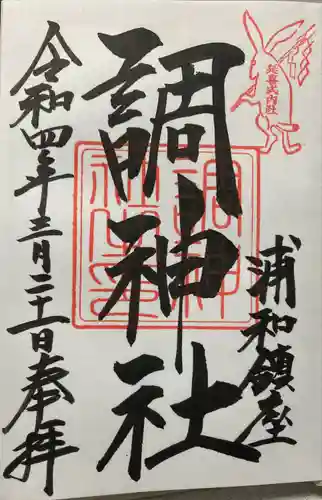 延喜式内社
浦和鎮座
調神社
令和四年三月二十一日奉拝